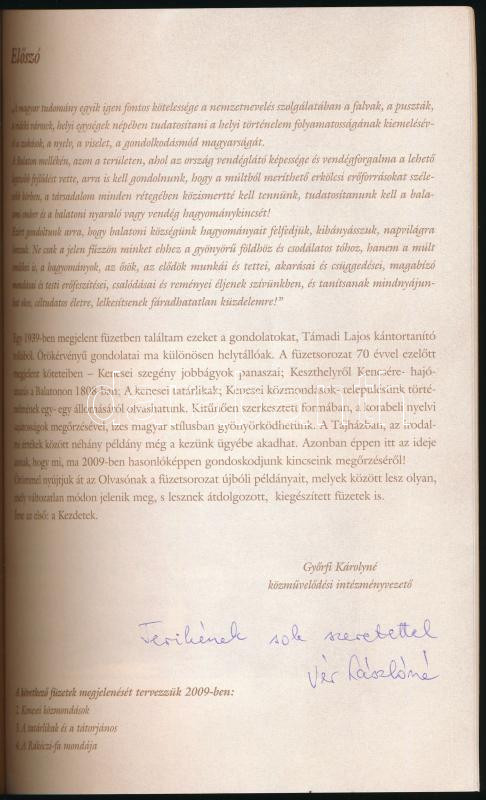 Előszó
„A magyar tudomány egyik igen fontos kötelessége a nemzetnevelés szolgálatában a falvak, a puszták,
városok, helyi egységek népében tudatosítani a helyi történelem folyamatosságának kiemelésév-
a szokások, a nyelv, a viselet, a gondolkodásmód magyarságát.
A Balaton mellékén, azon a területen, ahol az ország vendéglátó képessége és vendégforgalma a lehető
legszebb fejlődést vette, arra is kell gondolnunk, hogy a múltból meríthető erkölcsi erőforrásokat széle-
körben, a társadalom minden rétegében közismertté kell tennünk, tudatosítanunk kell a bala-
ember és a balatoni nyaraló vagy vendég hagyománykincsét!
Ezért gondoltunk arra, hogy balatoni községünk hagyományait felfidjuk, kihányásszuk, napvilágra
hozzuk. Ne csak a jelen fűzzön minket ehhez a gyönyörű földhöz és csodálatos tóhoz, hanem a múlt
is, a hagyományok, az ősök, az elődök munkái és tettei, akarásai és csüggedései, magabízó
és testi erőfeszítései, csalódásai és reményei éljenek szívünkben, és tanítsanak mindnyájun-
céltudatos életre, lelkesítsenek fáradhatatlan küzdelemre!”
Egy 1939-ben megjelent füzetben találtam ezeket a gondolatokat, Támadi Lajos kántortanító
tollából. Örökérvényű gondolatai ma különösen helytállóak. A füzetsorozat 70 évvel ezelőtt
megjelent köteteiben – Kenesei szegény jobbágyok panaszai; Keszthelyről Kencsére- hajó-
zás a Balatonon 1808-ban; A kenesei tatárlikak; Kenesei közmondások- településünk törté-
nelmének egy- egy állomásáról olvashatunk. Kitűnően szerkesztett formában, a korabeli nyelvi
sajátosságok megőrzésével, ízes magyar stílusban gyönyörködhetünk. A Tájházban, az irodal-
mi értékek között néhány példány még a kezünk ügyébe akadhat. Azonban éppen itt az ideje
annak, hogy mi, ma 2009-ben hasonlóképpen gondoskodjunk kincseink megőrzéséről!
Örömmel nyújtjuk át az Olvasónak a füzetsorozat újbóli példányait, melyek között lesz olyan,
mely változatlan módon jelenik meg, s lesznek átdolgozott, kiegészített füzetek is.
Íme az első: a Kezdetek.
Győrfi Károlyné
közművelődési intézményvezető
Terikének sok szeretettel
Vér Lászlóné
A következő füzetek megjelenését tervezzük 2009-ben:
2. Kenesei közmondások
3. A tatárlikak és a tátorjános
4. A Rákóczi-fa mondája